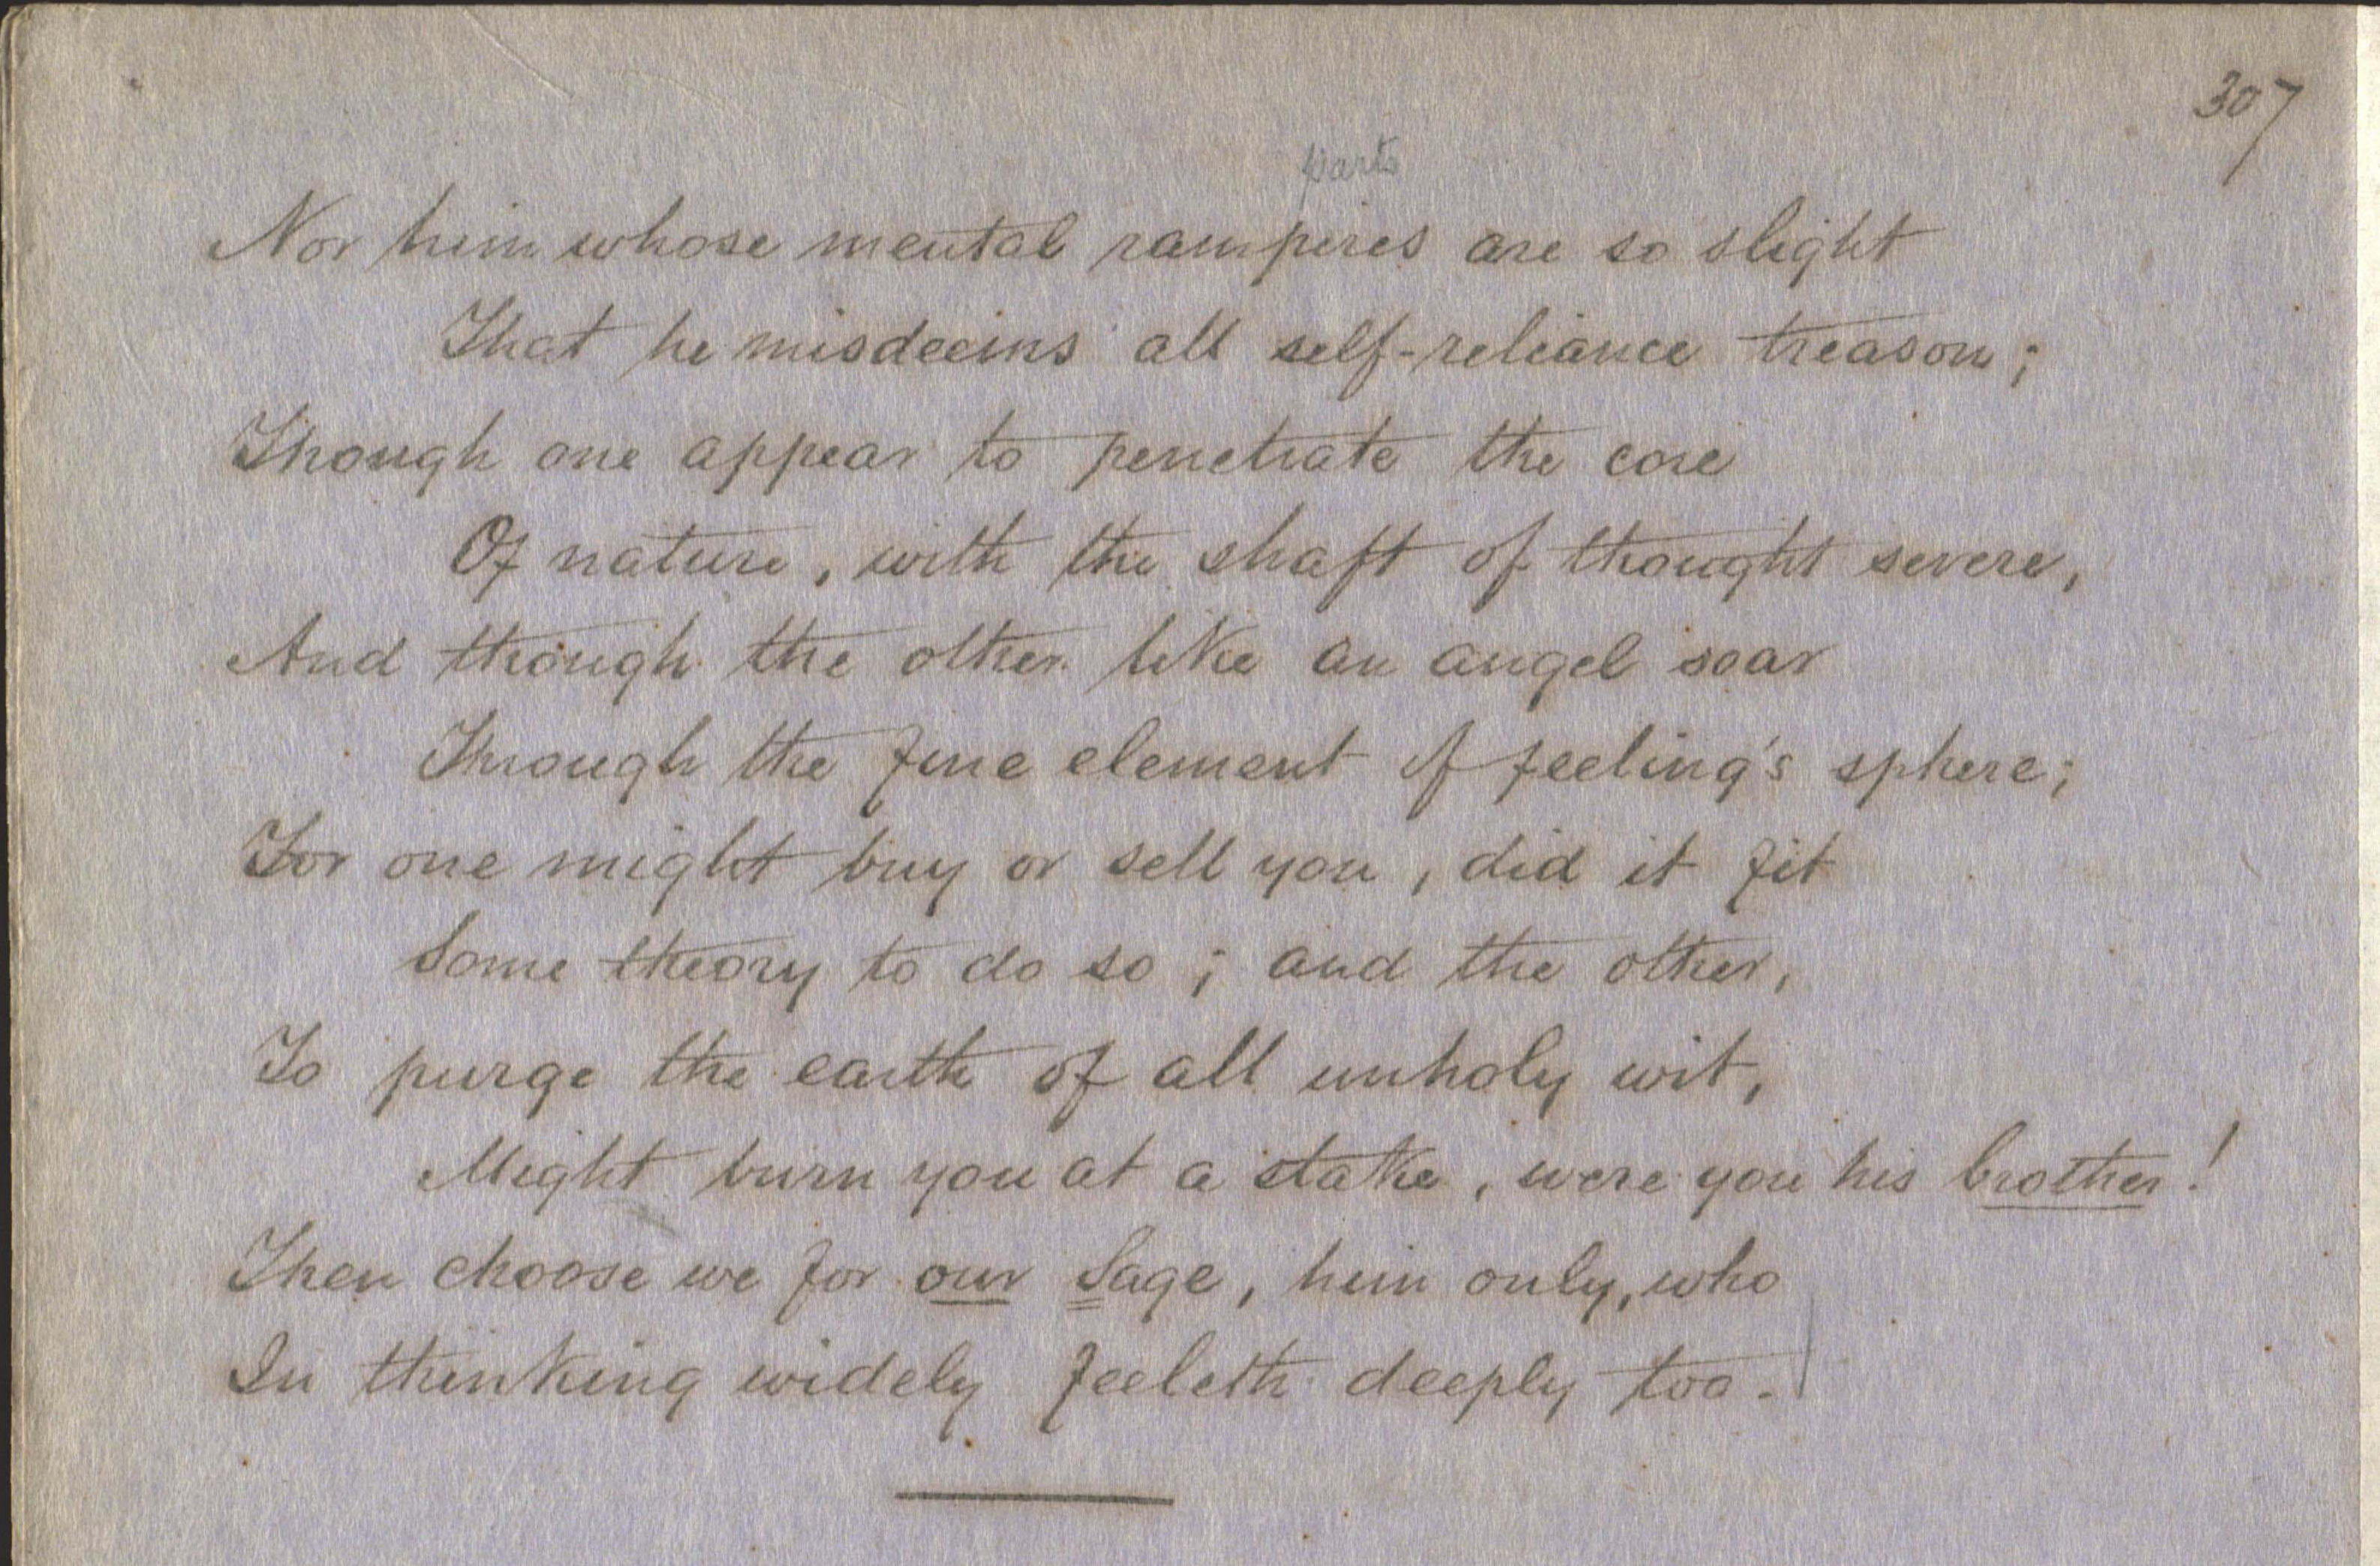 307
parts
Nor him whose mental rampires are so slight
That he misdeems all self-reliance treason;
Though one appear to penetrate the core
Of nature, with the shaft of thought severe,
And though the other like an angel soar
Through the fine element of feeling's sphere;
For one might buy or sell you, did it fit
Some theory to do so; and the other,
To purge the earth of all unholy wit,
Might burn you at a stake, were you his brother!
Then choose we for our Sage, him only, who
In thinking widely feeleth deeply too.